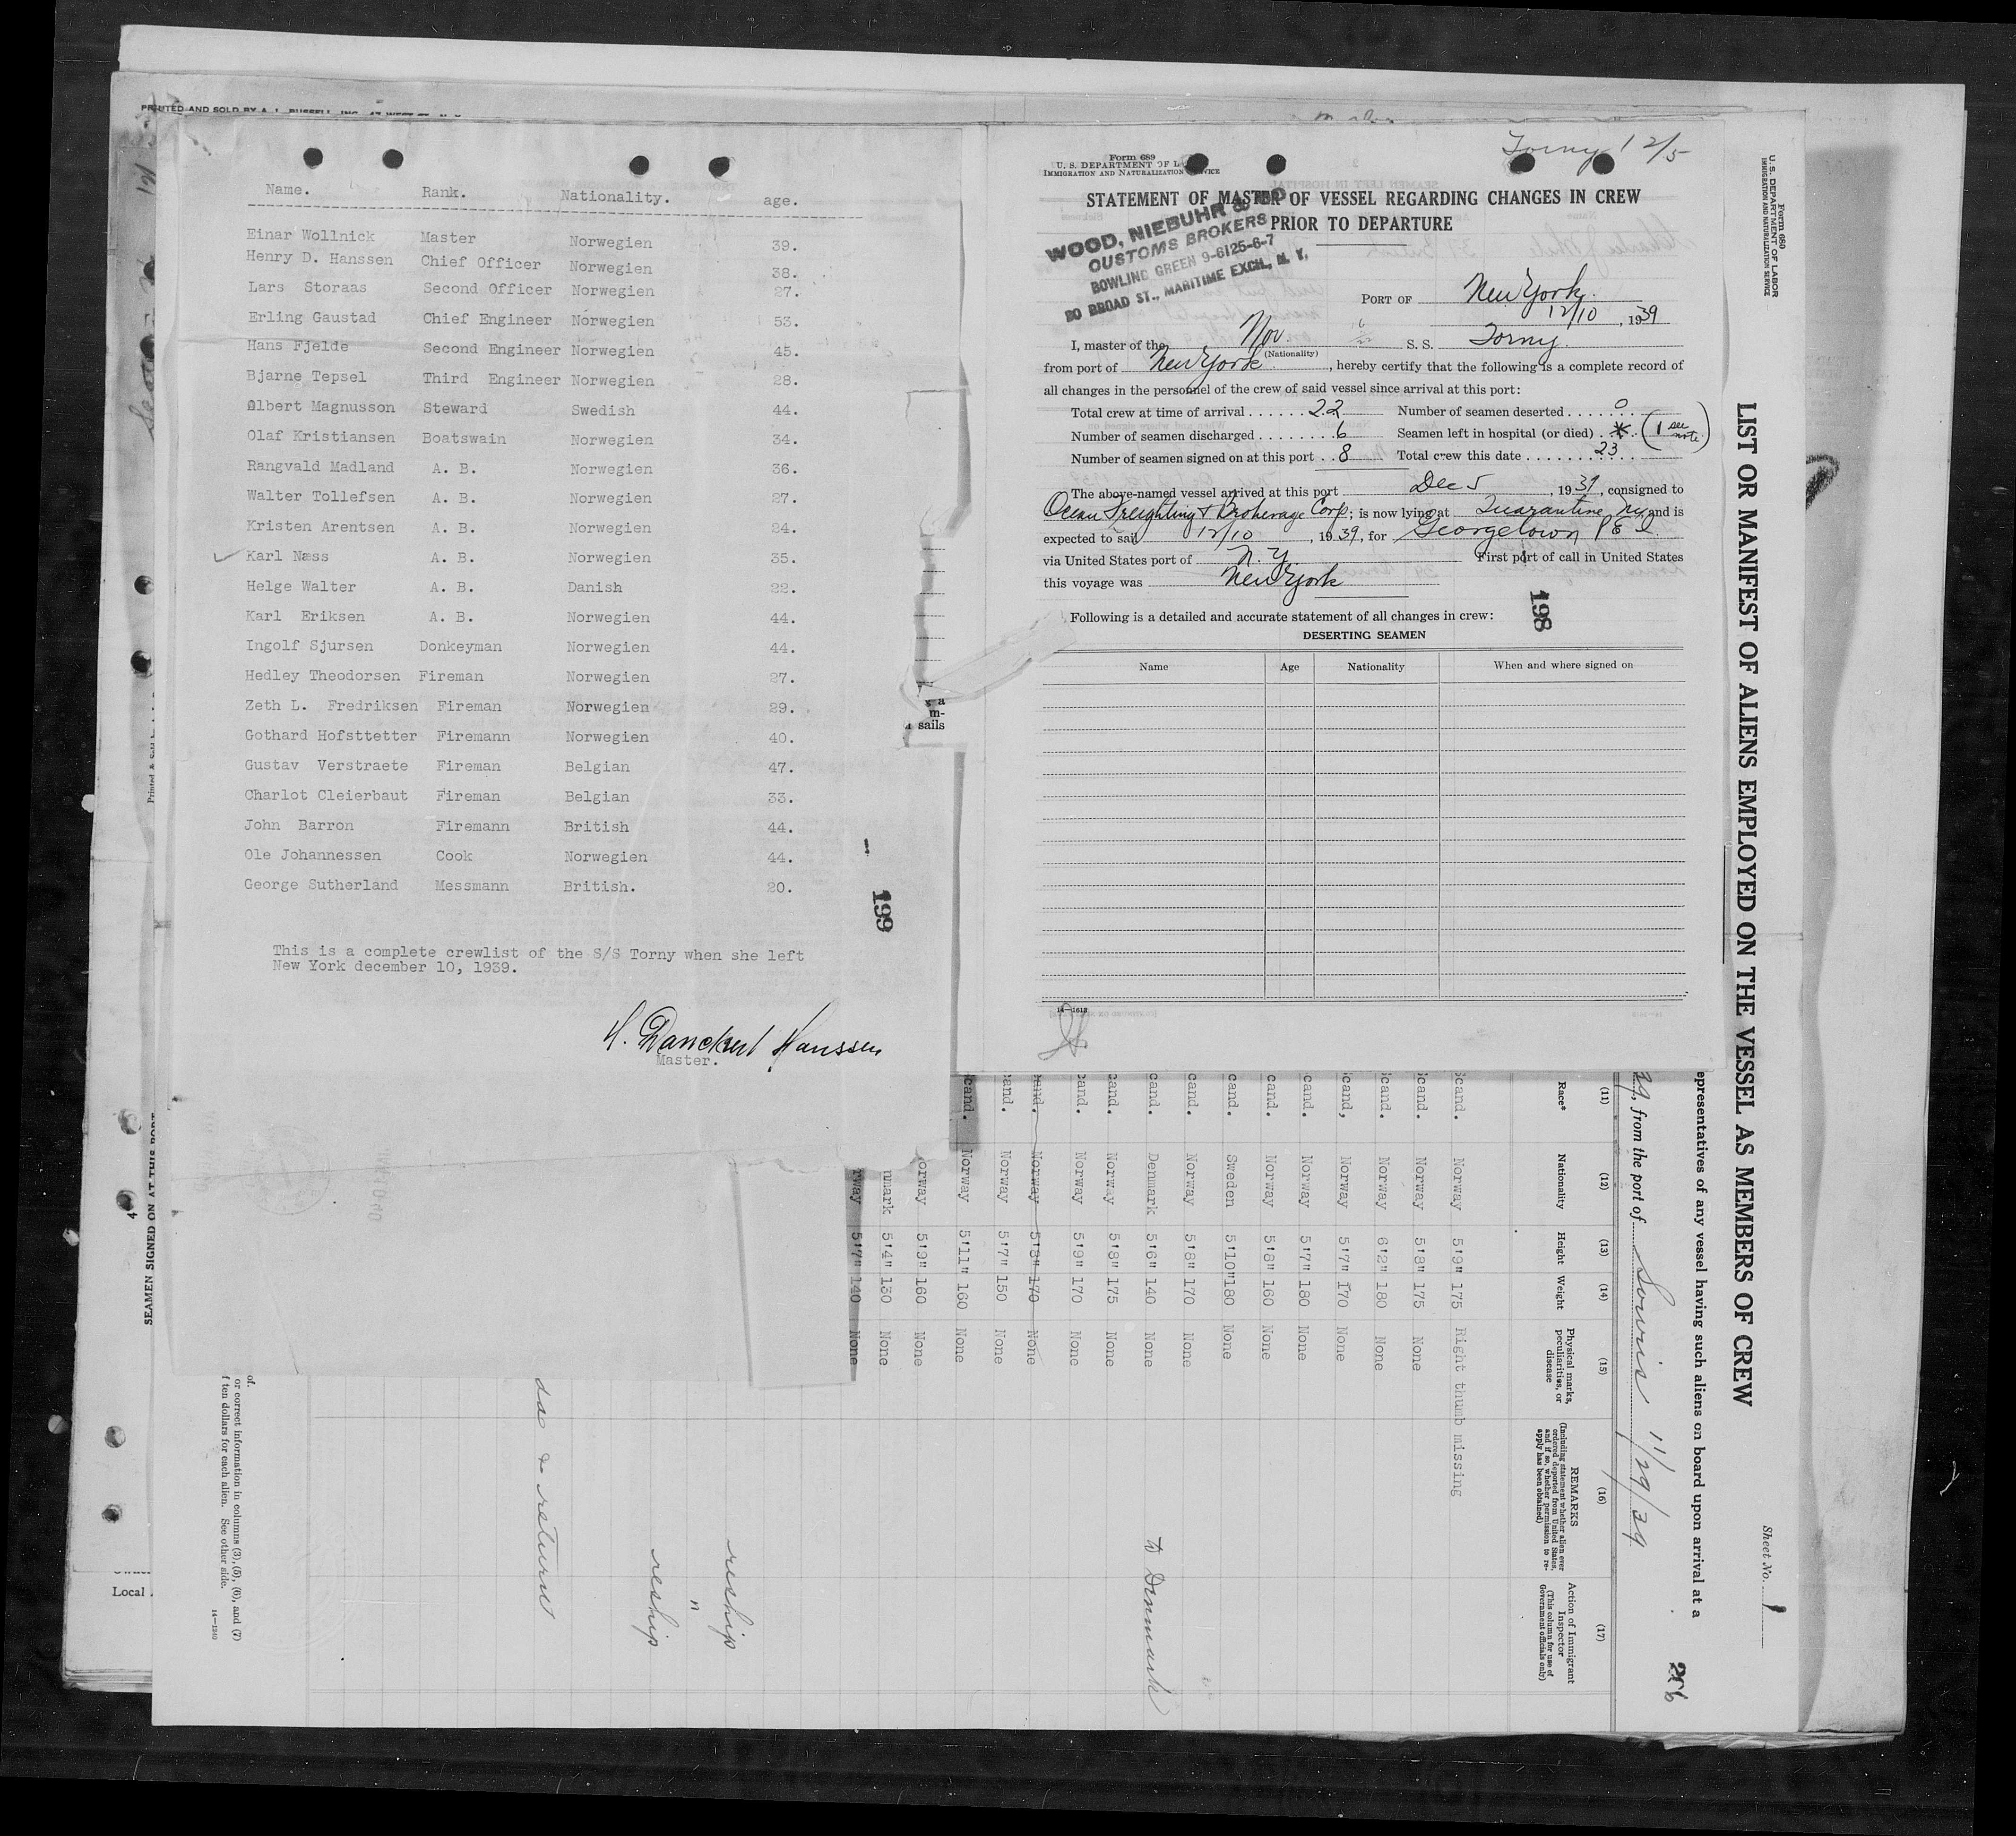 PRINTED AND SOLD BY A. L. RUSSELL, INC.
Name. Rank. Nationality. age.
Einar Wollnick Master Norwegien 39.
Henry D. Hanssen Chief Officer Norwegien 38.
Lars Storaas Second Officer Norwegien 27.
Erling Gaustad Chief Engineer Norwegien 53.
Hans Fjelde Second Engineer Norwegien 45.
Bjarne Tepsel Third Engineer Norwegien 28.
Albert Magnusson Steward Swedish 44.
Olaf Kristiansen Boatswain Norwegien 34.
Rangvald Madland A. B. Norwegien 36.
Walter Tollefsen A. B. Norwegien 27.
Kristen Arentsen A. B. Norwegien 24.
Karl Næss A. B. Norwegien 35.
Helge Walter A. B. Danish 22.
Karl Eriksen A. B. Norwegien 44.
Ingolf Sjursen Donkeyman Norwegien 44.
Hedley Theodorsen Fireman Norwegien 27.
Zeth L. Fredriksen Fireman Norwegien 29.
Gothard Hofsttetter Firemann Norwegien 40.
Gustav Verstraete Fireman Belgian 47.
Charlot Cleierbaut Fireman Belgian 33.
John Barron Firemann British 44.
Ole Johannessen Cook Norwegien 44.
George Sutherland Messmann British. 20.
199
This is a complete crewlist of the S/S Torny when she left
New York december 10, 1939.
H. Danckert Hanssen
Master.
Torny 12/5
Form 689
U. S. DEPARTMENT OF L
IMMIGRATION AND NATURALIZATION SERVICE
STATEMENT OF MASTER OF VESSEL REGARDING CHANGES IN CREW
PRIOR TO DEPARTURE
WOOD, NIEBUHR & CO
CUSTOMS BROKERS
BOWLING GREEN 9-6125-6-7
80 BROAD ST., MARITIME EXCH., N. Y.
PORT OF New York.
12/10, 1939
I, master of the Nor. S. S. Torny.
(Nationality)
from port of New York, hereby certify that the following is a complete record of
all changes in the personnel of the crew of said vessel since arrival at this port:
Total crew at time of arrival 22 Number of seamen deserted 0
Number of seamen discharged 6 Seamen left in hospital (or died) * (1 see note)
Number of seamen signed on at this port 8 Total crew this date 23
The above-named vessel arrived at this port Dec 5, 1939, consigned to
Ocean Freighting & Brokerage Corp; is now lying at Quarantine NY, and is
expected to sail 12/10, 1939, for Georgetown P E I.
via United States port of N. Y First port of call in United States
this voyage was New York
198
Following is a detailed and accurate statement of all changes in crew:
DESERTING SEAMEN
Name Age Nationality When and where signed on
14—1618
m-
sails
Form 680
U. S. DEPARTMENT OF LABOR
IMMIGRATION AND NATURALIZATION SERVICE
LIST OR MANIFEST OF ALIENS EMPLOYED ON THE VESSEL AS MEMBERS OF CREW
Sheet No. 1
epresentatives of any vessel having such aliens on board upon arrival at a
39, from the port of Souris 11/29/39
(11) (12) (13) (14) (15) (16) (17)
Race* Nationality Height Weight Physical marks, peculiarities, or disease REMARKS (Including statement whether alien ever ordered deported from United States, and if so, whether permission to reapply has been obtained) Action of Immigrant Inspector (This column for use of Government officials only)
Scand. Norway 5'9" 175 Right thumb missing
Scand. Norway 5'8" 175 None
Scand. Norway 6'2" 180 None
Scand, Norway 5'7" 170 None
cand. Norway 5'7" 180 None
cand. Norway 5'8" 160 None
cand. Sweden 5'10" 180 None
cand. Norway 5'8" 170 None
cand. Denmark 5'6" 140 None to Denmark
cand. Norway 5'8" 175 None
cand. Norway 5'9" 170 None
and. Norway 5'8" 170 None
and. Norway 5'7" 150 None
cand. Norway 5'11" 160 None
orway 5'9" 160 None
nmark 5'4" 130 None
rway 5'7" 140 None
reship
"
reship
do to return
of.
or correct information in columns (3), (5), (6), and (7)
f ten dollars for each alien. See other side.
14—1240
SEAMEN SIGNED ON AT THIS PORT
Local